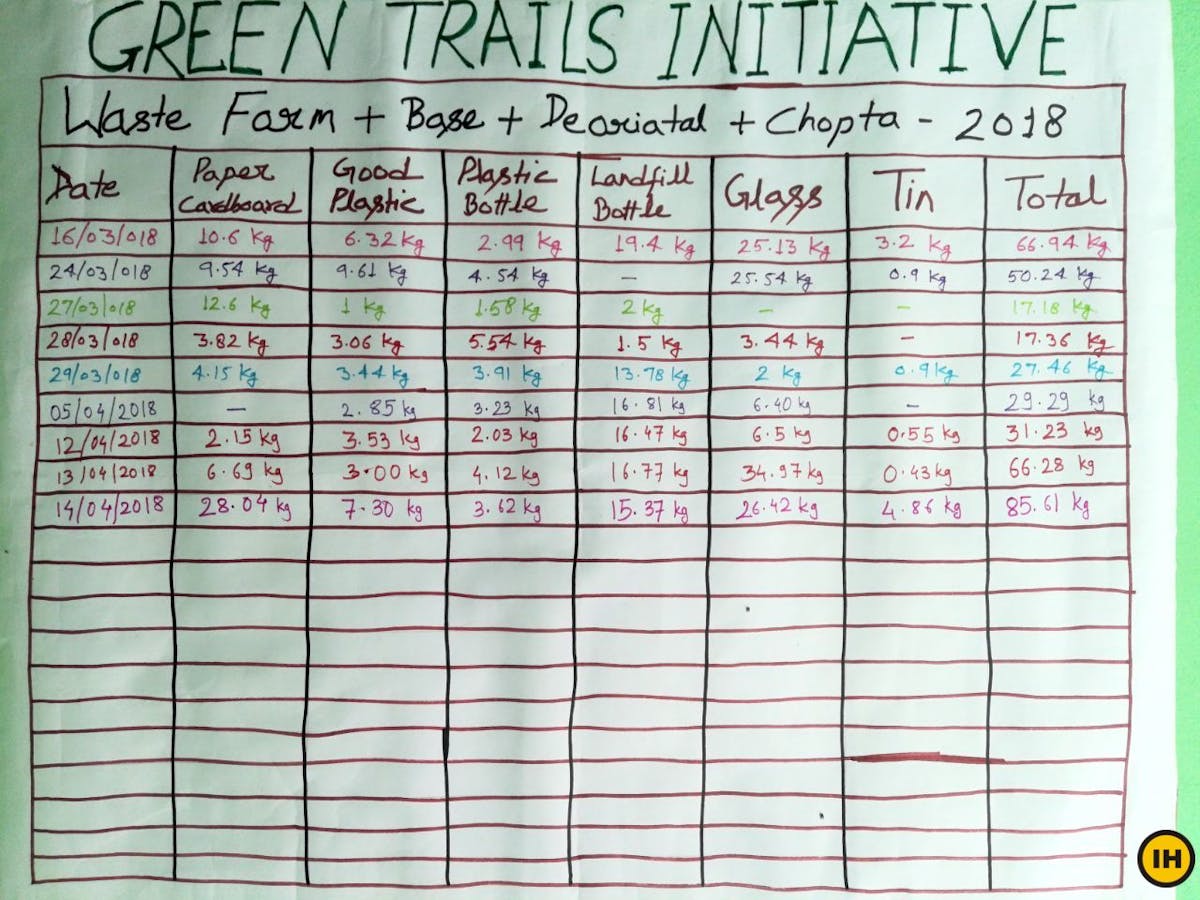 GREEN TRAILS INITIATIVE
Waste Farm + Base + Deoriatal + Chopta - 2018
Date Paper Cardboard Good Plastic Plastic Bottle Landfill Bottle Glass Tin Total
16/03/018 10.6 kg 6.32 kg 2.99 kg 19.4 kg 25.13 kg 3.2 kg 66.94 kg
24/03/018 9.54 kg 9.61 kg 4.54 kg — 25.54 kg 0.9 kg 50.24 kg
27/03/018 12.6 kg 1 kg 1.58 kg 2 kg — — 17.18 kg
28/03/018 3.82 kg 3.06 kg 5.54 kg 1.5 kg 3.44 kg — 17.36 kg
29/03/018 4.15 kg 3.44 kg 3.91 kg 13.78 kg 2 kg 0.9 kg 27.46 kg
05/04/2018 — 2.85 kg 3.23 kg 16.81 kg 6.40 kg — 29.29 kg
12/04/2018 2.15 kg 3.53 kg 2.03 kg 16.47 kg 6.5 kg 0.55 kg 31.23 kg
13/04/2018 6.69 kg 3.00 kg 4.12 kg 16.77 kg 34.97 kg 0.43 kg 66.28 kg
14/04/2018 28.04 kg 7.30 kg 3.62 kg 15.37 kg 26.42 kg 4.86 kg 85.61 kg
IH